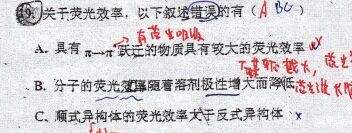 19. 关于荧光效率，以下叙述错误的有（ABC）
有荧光吸收
A. 具有 π→π* 跃迁的物质具有较大的荧光效率 x
越大，荧光
B. 分子的荧光效率随着溶剂极性增大而降低
C. 顺式异构体的荧光效率大于反式异构体 x